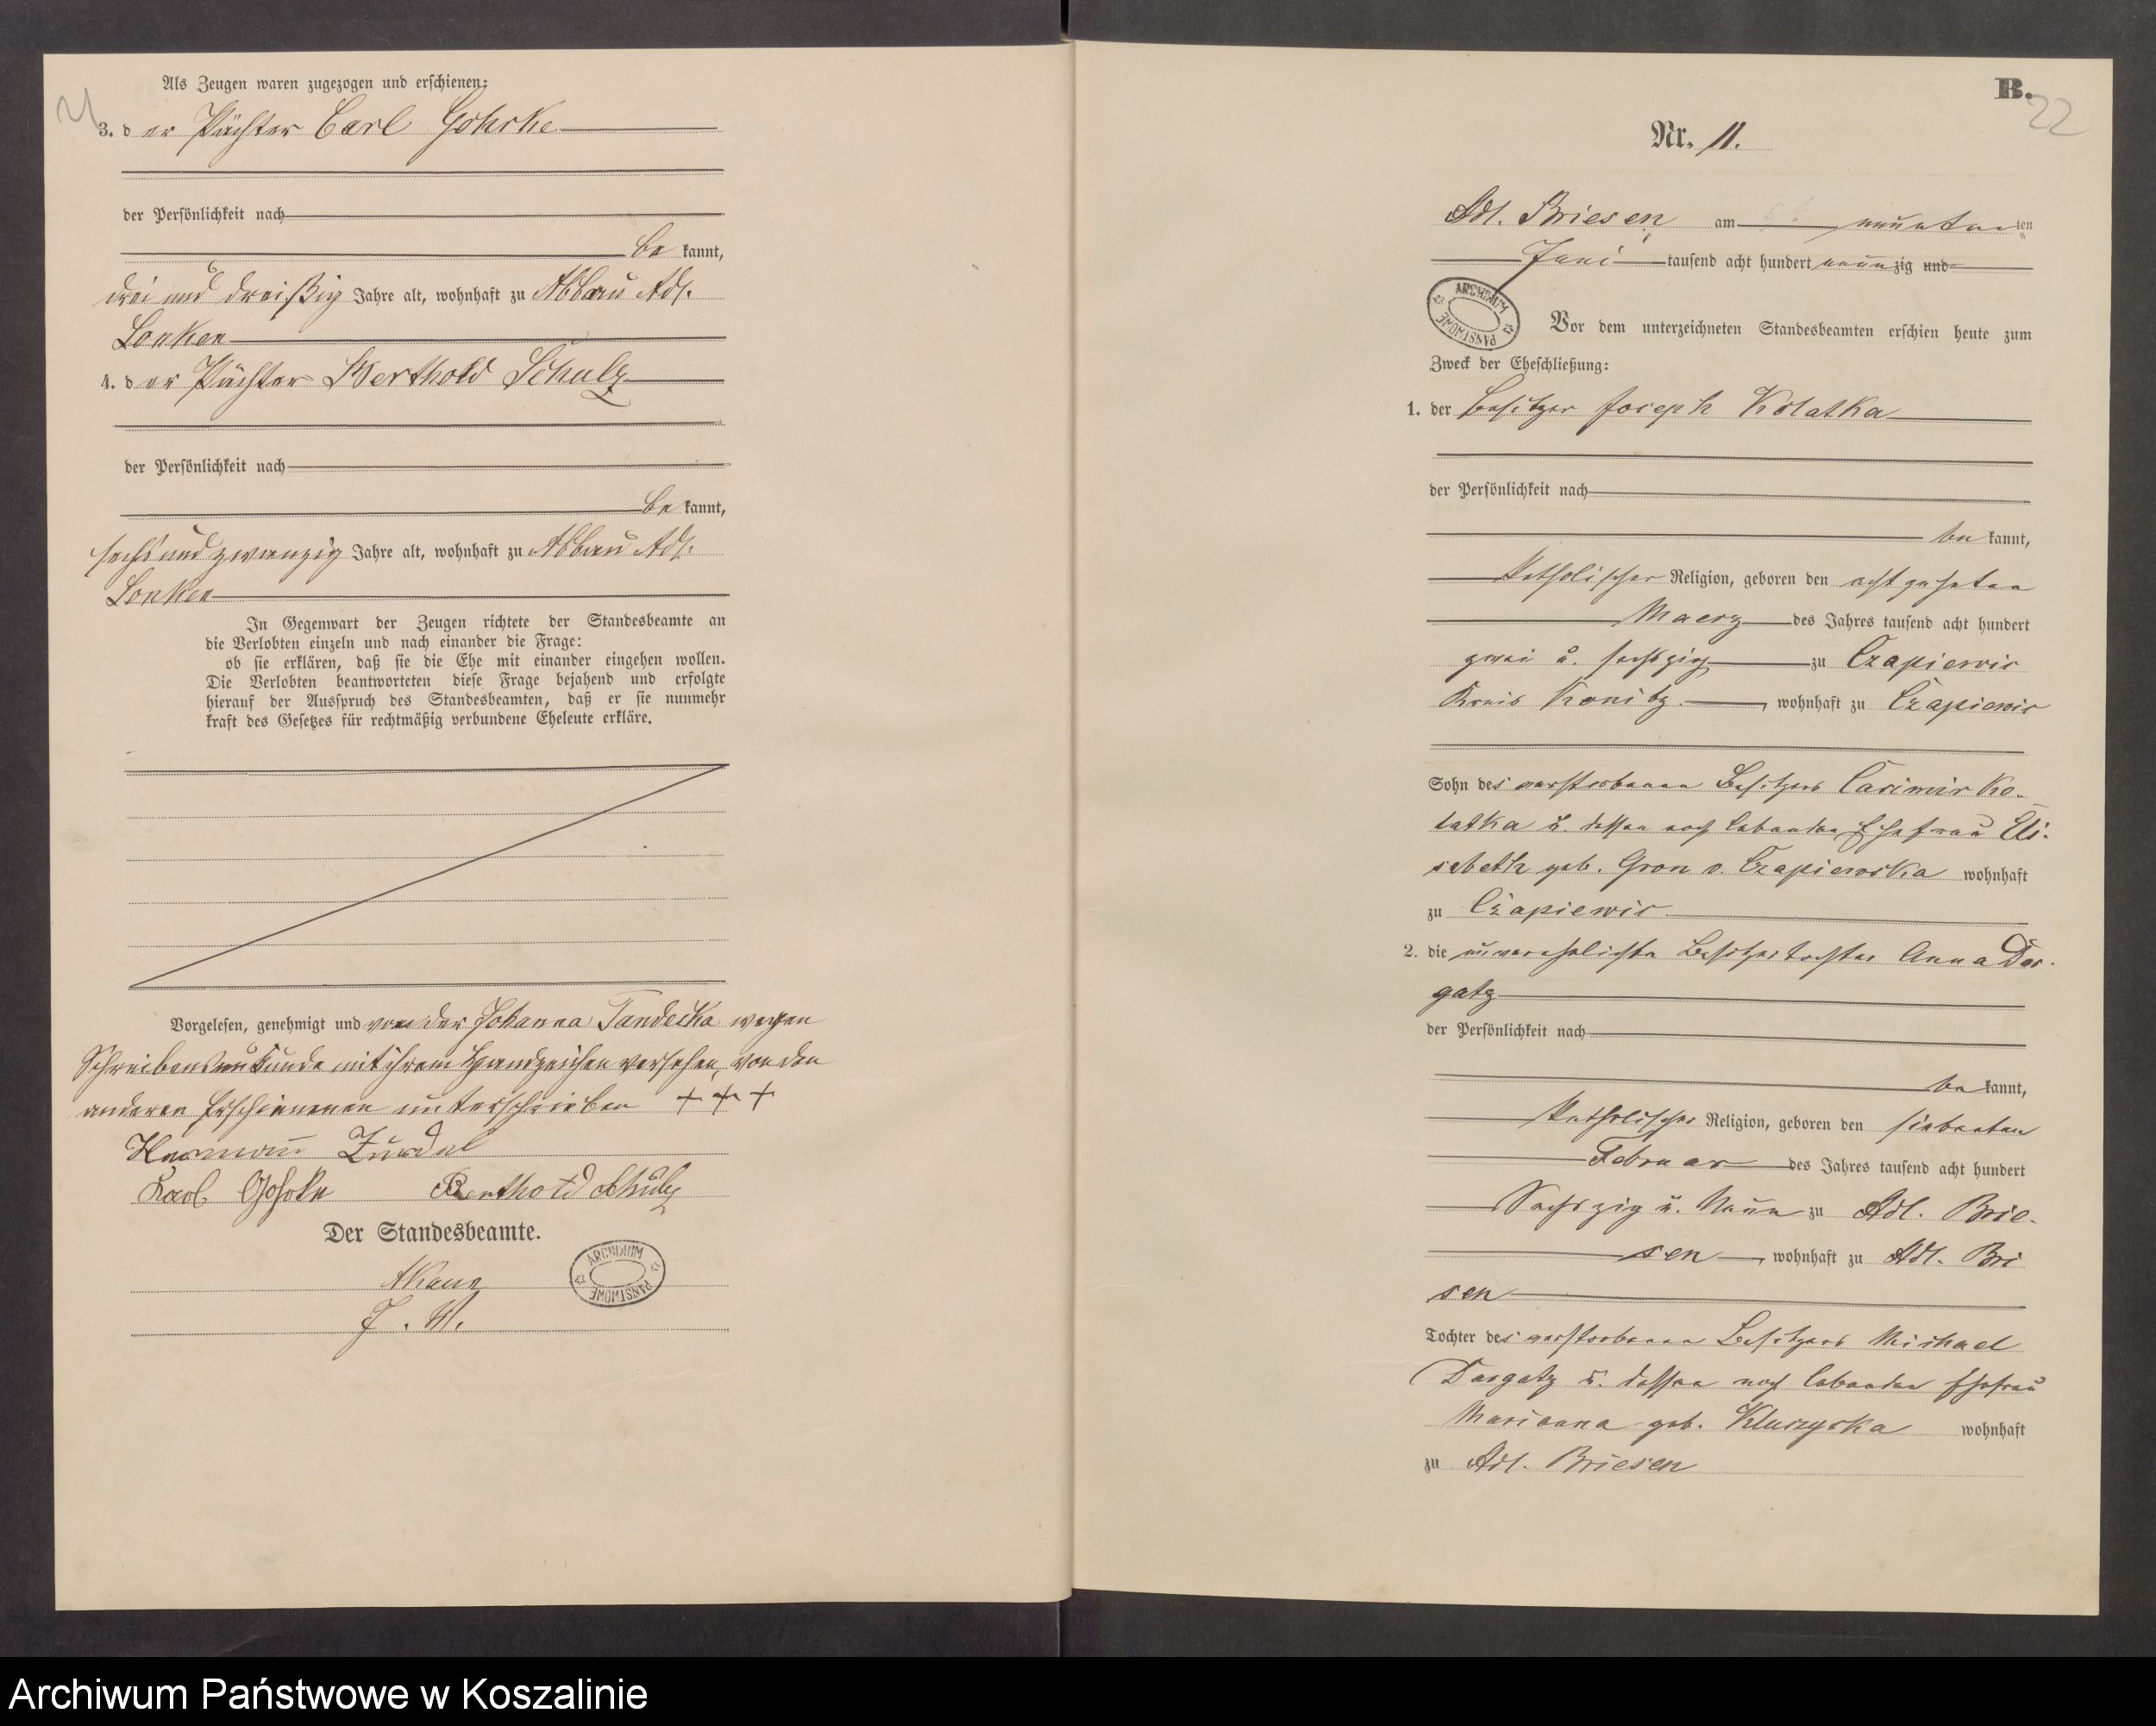 21
Als Zeugen waren zugezogen und erschienen:
3. der Pächter Carl Gohrke
der Persönlichkeit nach
be kannt,
drei und dreißig Jahre alt, wohnhaft zu Abbau Adl.
Lonken
4. der Pächter Berthold Schulz
der Persönlichkeit nach
be kannt,
sechs und zwanzig Jahre alt, wohnhaft zu Abbau Adl.
Lonken
In Gegenwart der Zeugen richtete der Standesbeamte an
die Verlobten einzeln und nach einander die Frage:
ob sie erklären, daß sie die Ehe mit einander eingehen wollen.
Die Verlobten beantworteten diese Frage bejahend und erfolgte
hierauf der Ausspruch des Standesbeamten, daß er sie nunmehr
kraft des Gesetzes für rechtmäßig verbundene Eheleute erkläre.
Vorgelesen, genehmigt und von der Johanna Tandecka wegen
Schreibensunkunde mit ihrem Handzeichen versehen, von den
anderen Erschienenen unterschrieben +++
Hermann
Karl Gohrke Berthold Schulz
Der Standesbeamte.
ARCHIWUM PAŃSTWOWE
J. V.
B.
22
Nr. 11.
Adl. Briesen am neunten ten
Juni tausend acht hundert neunzig und
ARCHIWUM PAŃSTWOWE
Vor dem unterzeichneten Standesbeamten erschien heute zum
Zweck der Eheschließung:
1. der Besitzer Joseph Kolatka
der Persönlichkeit nach
be kannt,
katholischer Religion, geboren den achtzehnten
Maerz des Jahres tausend acht hundert
zwei u. sechszig zu Czapiewic
Kreis Konitz, wohnhaft zu Czapiewic
Sohn des verstorbenen Besitzers Casimir Ko-
latka u. dessen noch lebenden Ehefrau Eli-
sabeth geb. Gron v. Czapiewska wohnhaft
zu Czapiewic
2. die unverehelichte Besitzertochter Anna Dar-
gatz
der Persönlichkeit nach
be kannt,
katholischer Religion, geboren den siebenten
Februar des Jahres tausend acht hundert
Sechszig u. Neun zu Adl. Brie-
sen, wohnhaft zu Adl. Bri
sen
Tochter des verstorbenen Besitzers Michael
Dargatz u. dessen noch lebenden Ehefrau
Marianna geb. wohnhaft
zu Adl. Briesen
Archiwum Państwowe w Koszalinie